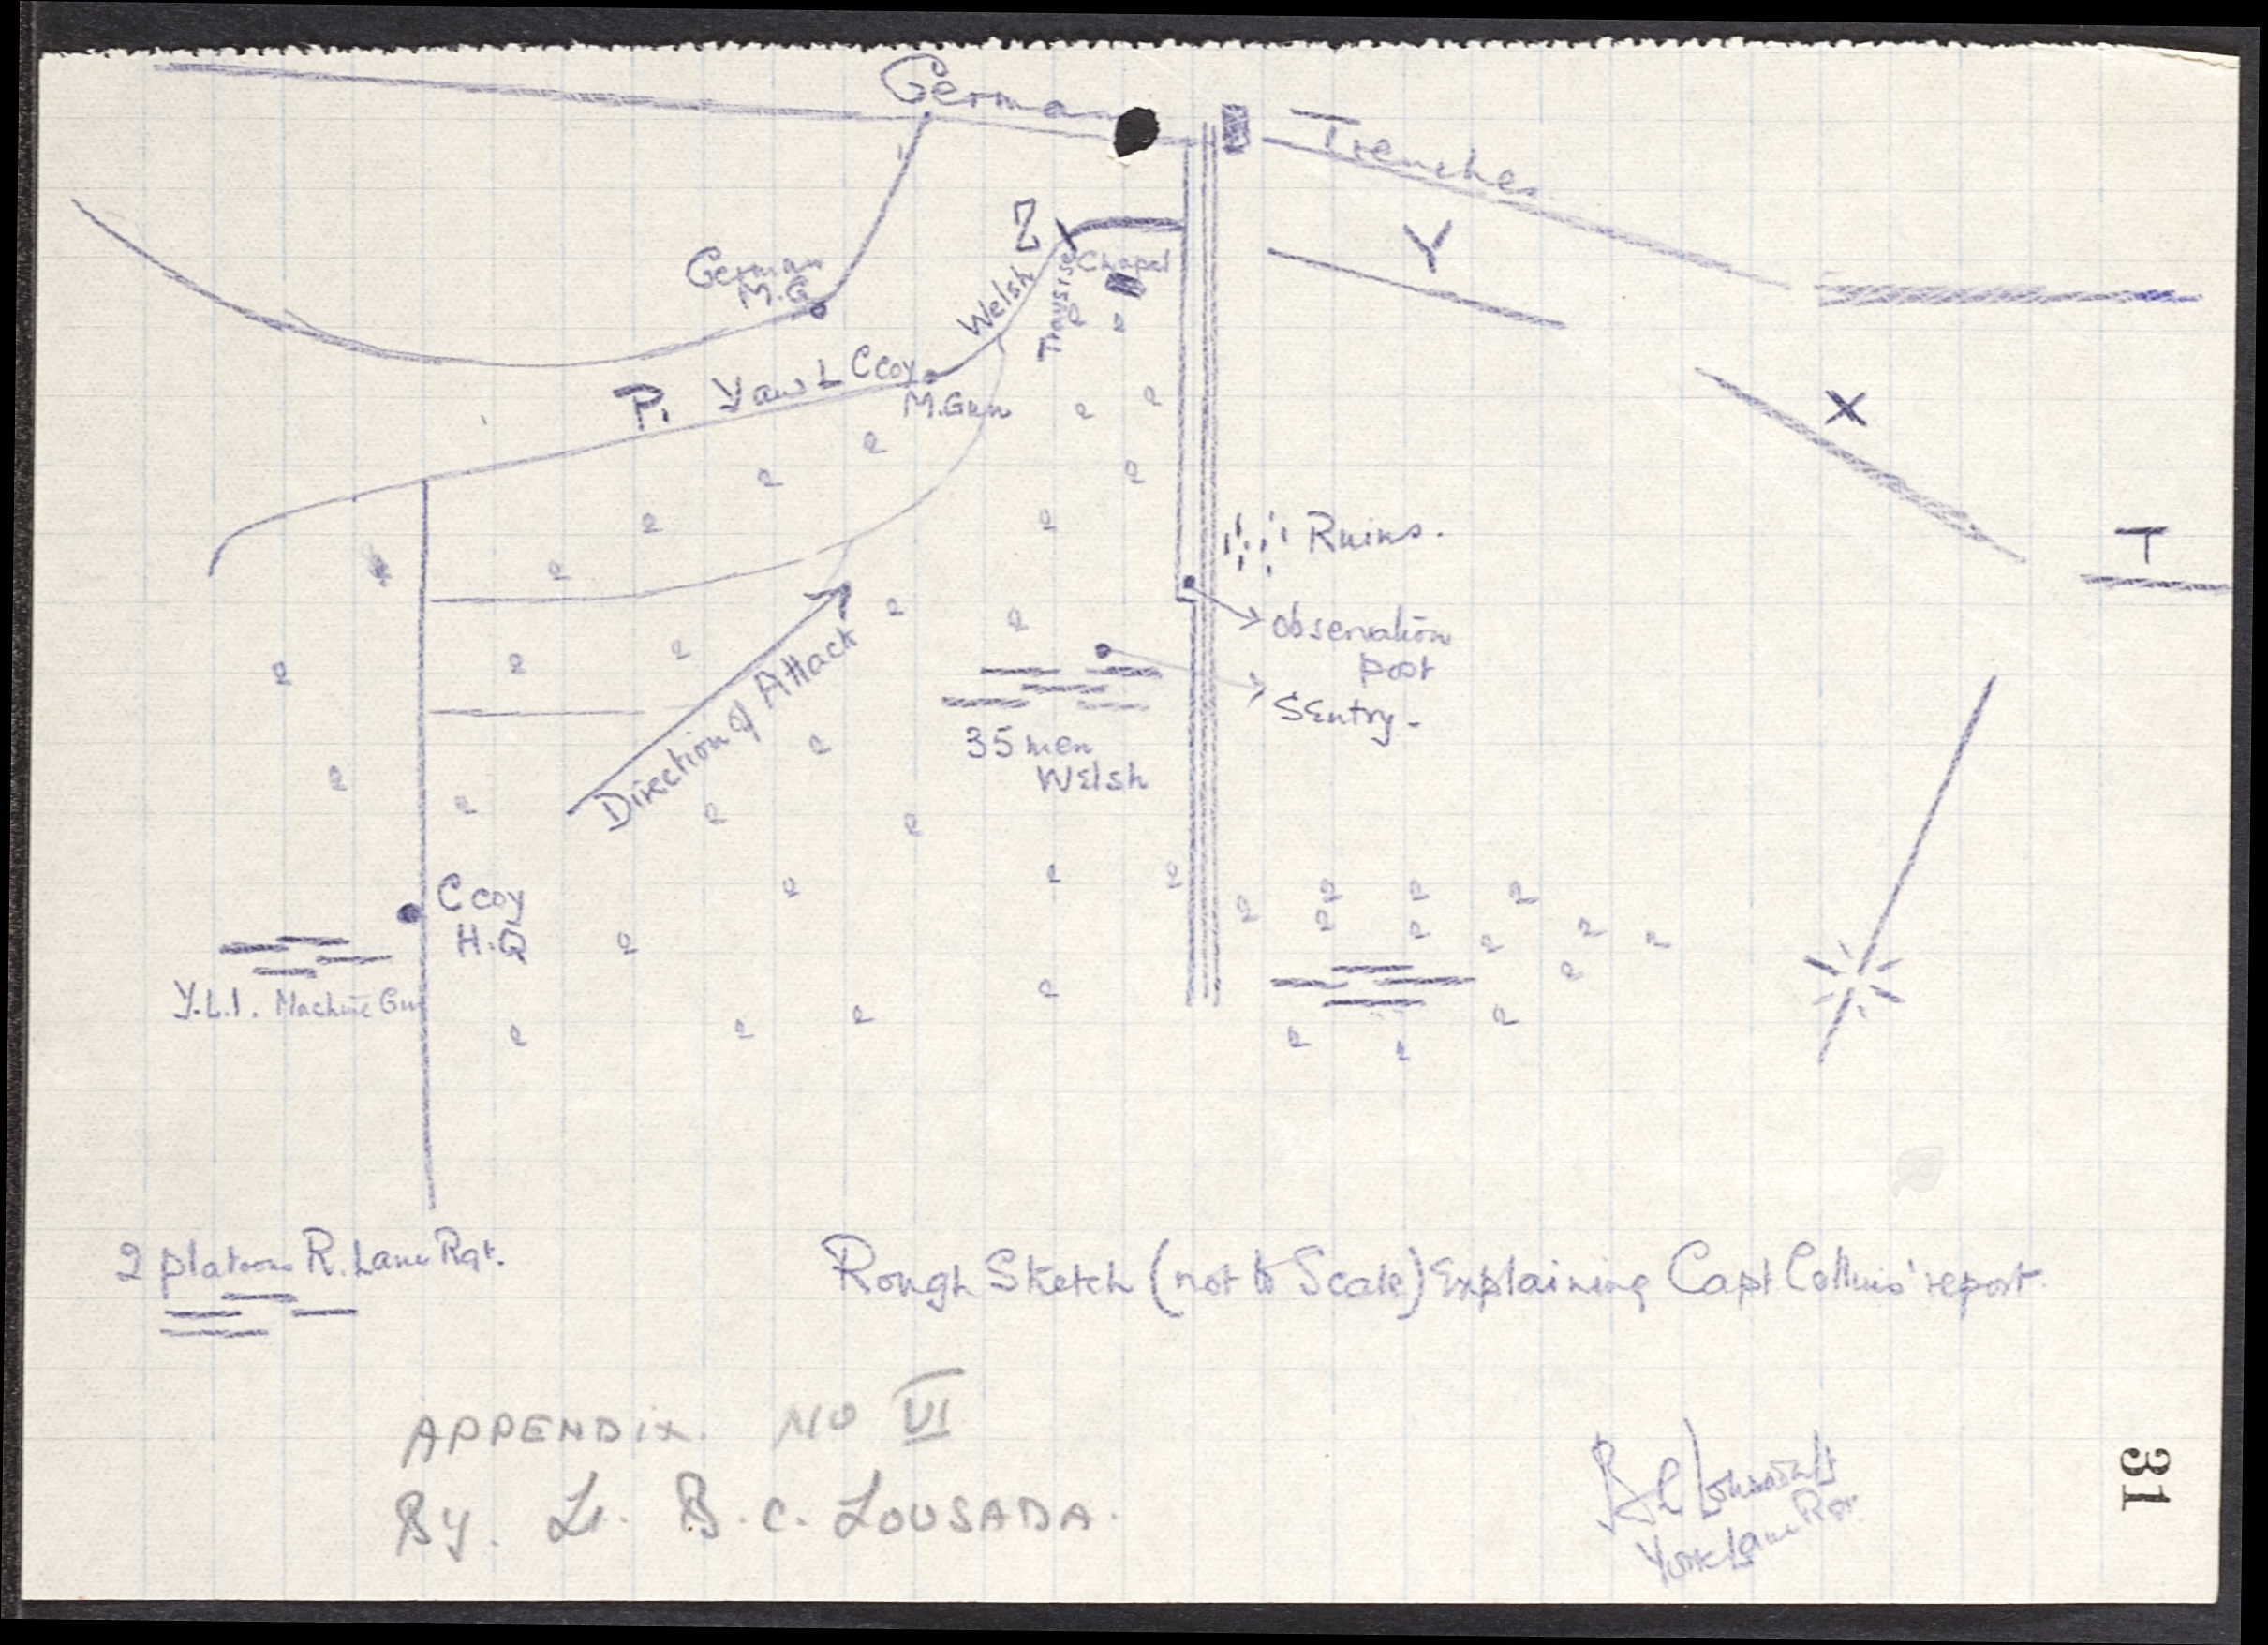 German Trenches
Z
Y
German
M.G.
Chapel
Welsh
P. Y and L C Coy
M. Gun
X
Ruins.
T
observation
post
Sentry -
Direction of Attack
35 men
Welsh
C Coy
H.Q
Y.L.I. Machine Gun
2 platoons R. Lanc Rgt.
Rough Sketch (not to Scale) Explaining Capt Collins' report.
APPENDIX. NO VI
By. Lt. B.C. LOUSADA.
York Lanc Rgt.
31